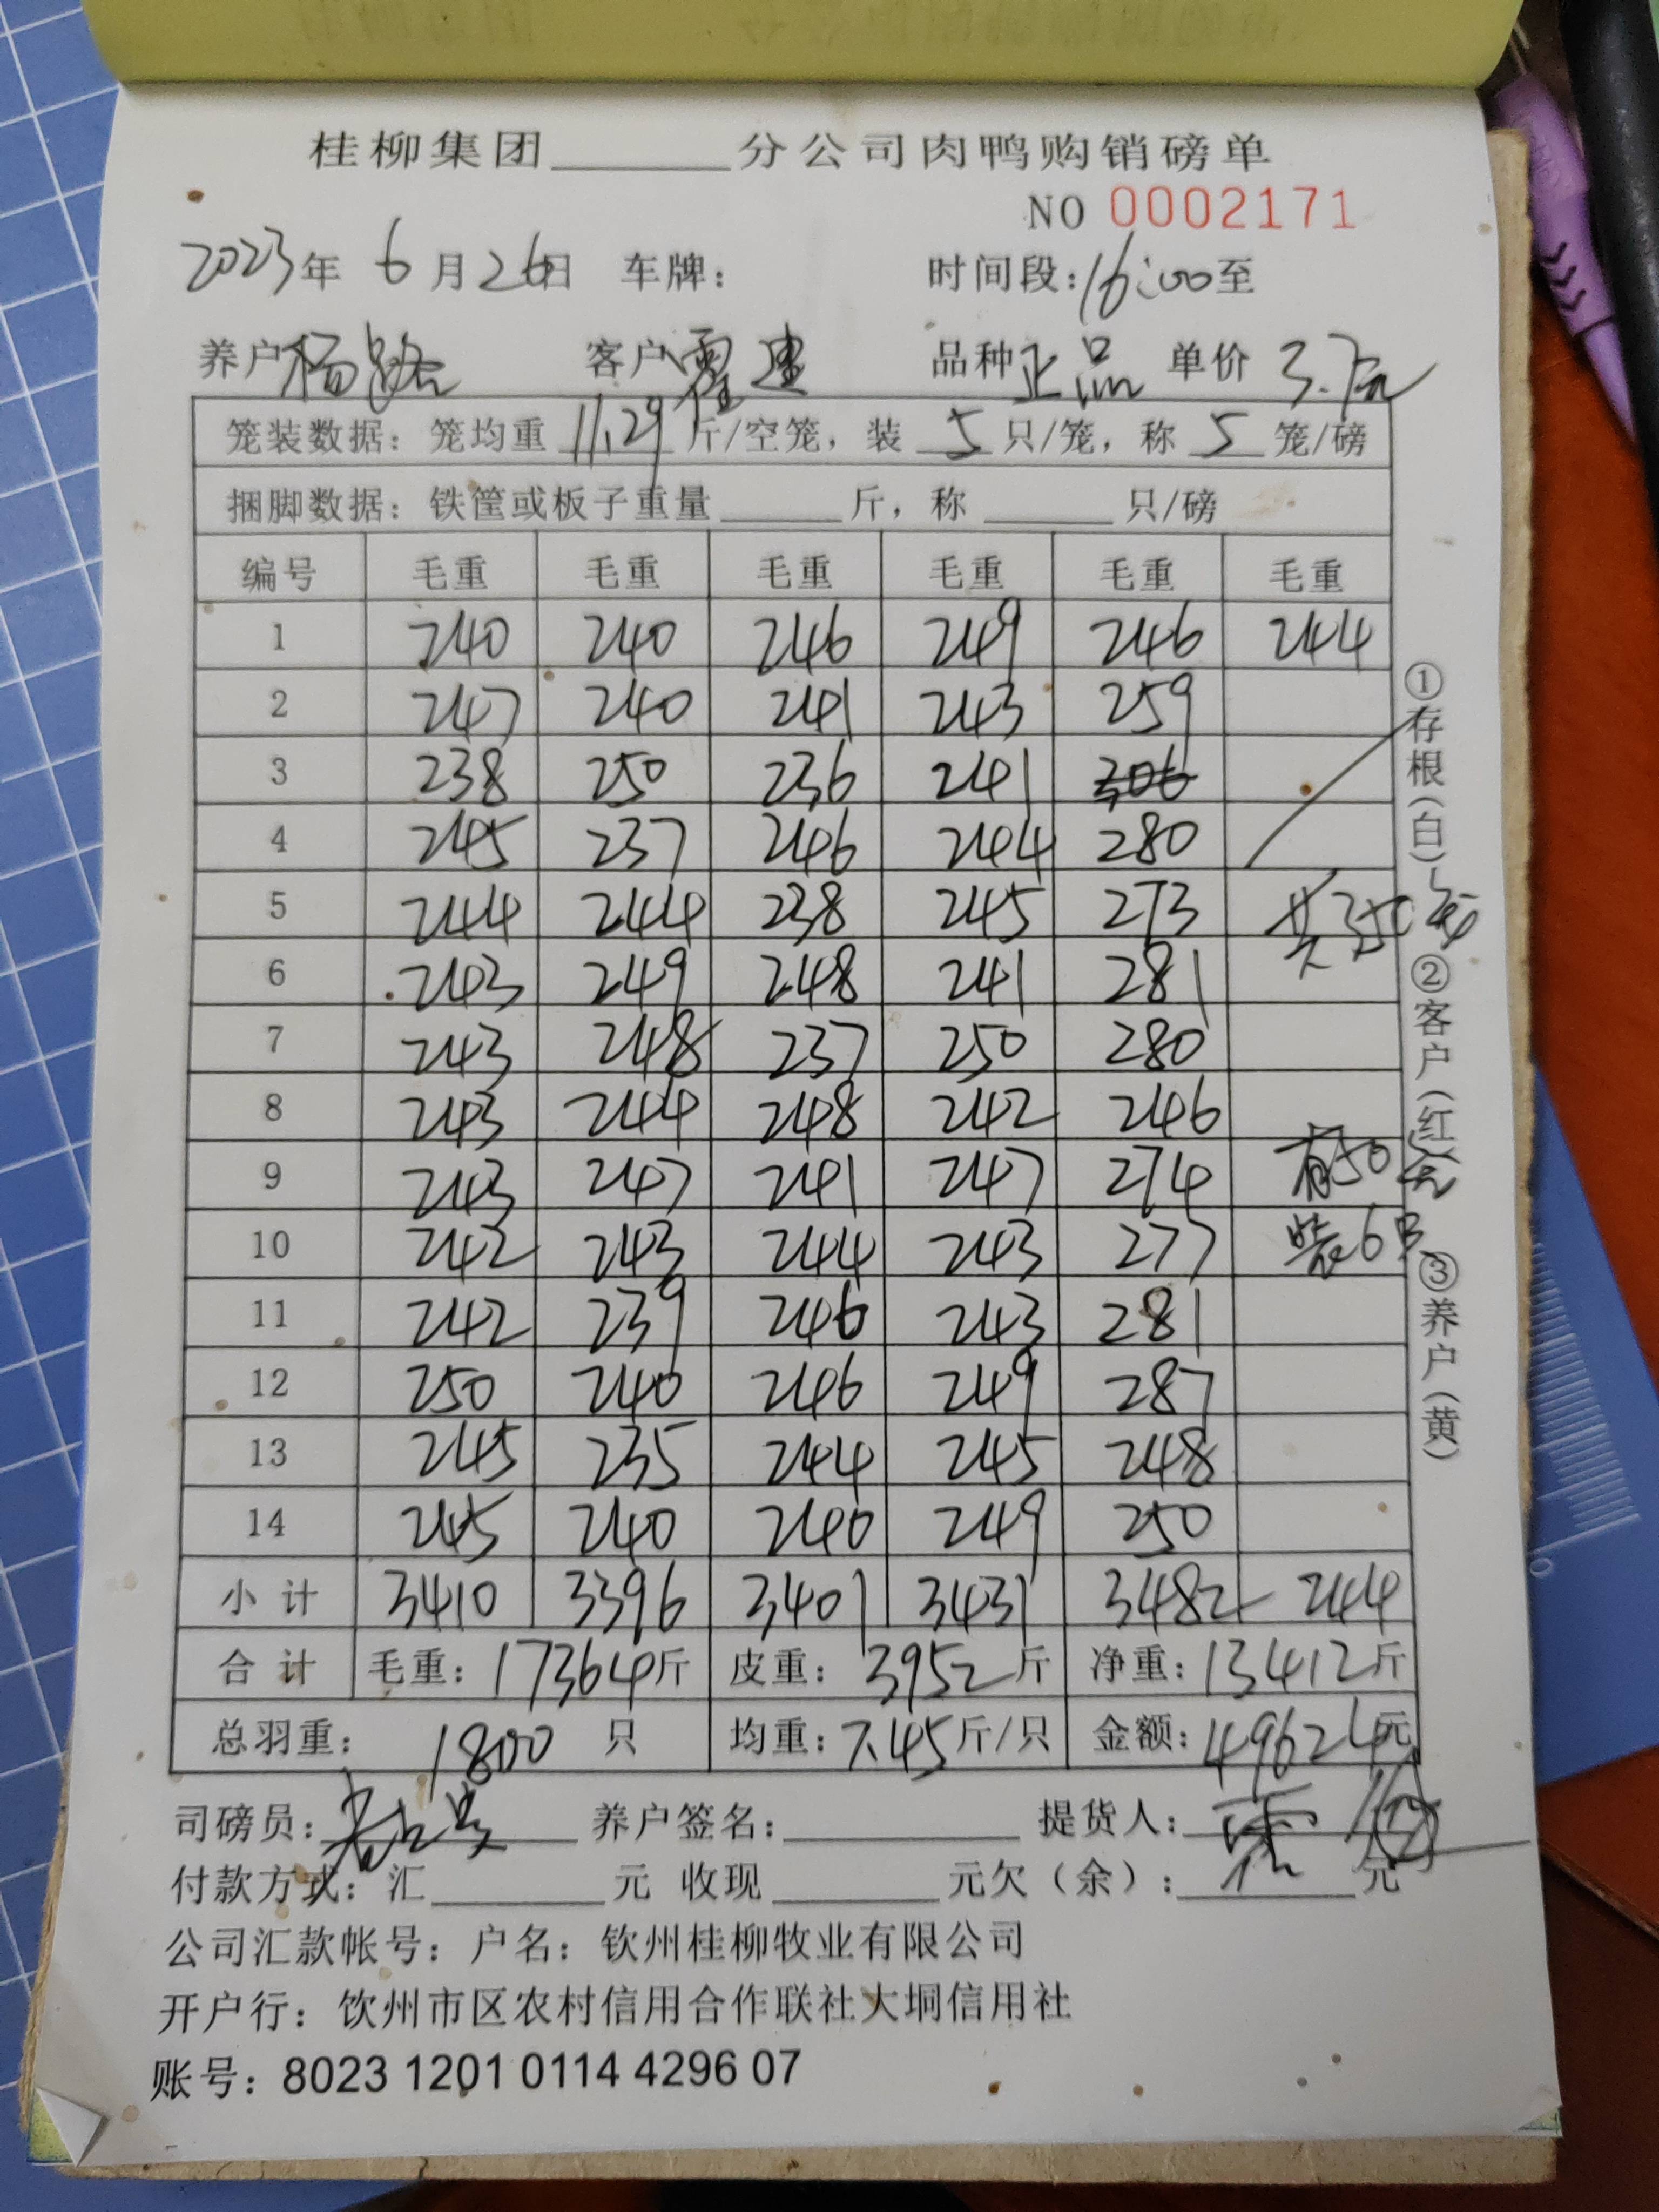 桂柳集团______分公司肉鸭购销磅单
NO 0002171
2023年 6月26日 车牌: 时间段:16:00至
养户 杨路 客户 霍建 品种 正品 单价 3.7元
笼装数据: 笼均重 11.29 斤/空笼, 装 5 只/笼, 称 5 笼/磅
捆脚数据: 铁筐或板子重量______斤, 称______只/磅
编号 毛重 毛重 毛重 毛重 毛重 毛重
1 240 240 246 249 246 244
2 247 240 241 243 259
3 238 250 236 241 306
4 245 237 246 244 280
5 244 244 238 245 273 共350笼
6 243 249 248 241 281
7 243 248 237 250 280
8 243 244 248 242 246
9 243 247 241 247 274 有50笼
10 242 243 244 243 277 装6只
11 242 239 246 243 281
12 250 240 246 249 287
13 245 235 244 245 248
14 245 240 240 249 250
小计 3410 3396 3401 3431 3482 244
合计 毛重: 17364斤 皮重: 3952斤 净重: 13412斤
总羽重: 1800 只 均重: 7.45斤/只 金额: 49624元
司磅员: 养户签名: 提货人:
付款方式: 汇______元 收现______元欠(余):______元
公司汇款帐号: 户名: 钦州桂柳牧业有限公司
开户行: 钦州市区农村信用合作联社大垌信用社
账号: 8023 1201 0114 4296 07
①存根(白) ②客户(红) ③养户(黄)